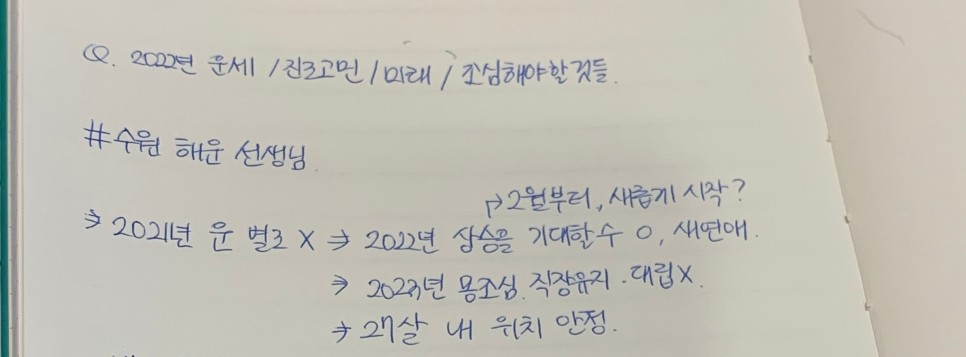 Q. 2022년 운세 / 진로고민 / 미래 / 조심해야할것들.
#수원 해운 선생님.
↱2월부터, 새롭게 시작?
⇒ 2021년 운 별로 X ⇒ 2022년 상승을 기대할수 O, 새연애.
⇒ 2023년 몸조심. 직장유지. 대립X.
⇒ 27살 내 위치 안정.